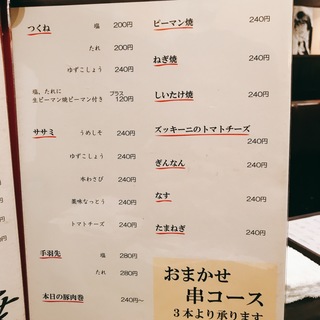 つくね 塩 200円
たれ 200円
ゆずこしょう 240円
塩、たれに
生ピーマン焼ピーマン付き プラス 120円
ササミ うめしそ 240円
ゆずこしょう 240円
本わさび 240円
薬味なっとう 240円
トマトチーズ 240円
手羽先 塩 280円
たれ 280円
本日の豚肉巻 240円〜
ピーマン焼 240円
ねぎ焼 240円
しいたけ焼 240円
ズッキーニのトマトチーズ 240円
ぎんなん 240円
なす 240円
たまねぎ 240円
おまかせ
串コース
3本より承ります